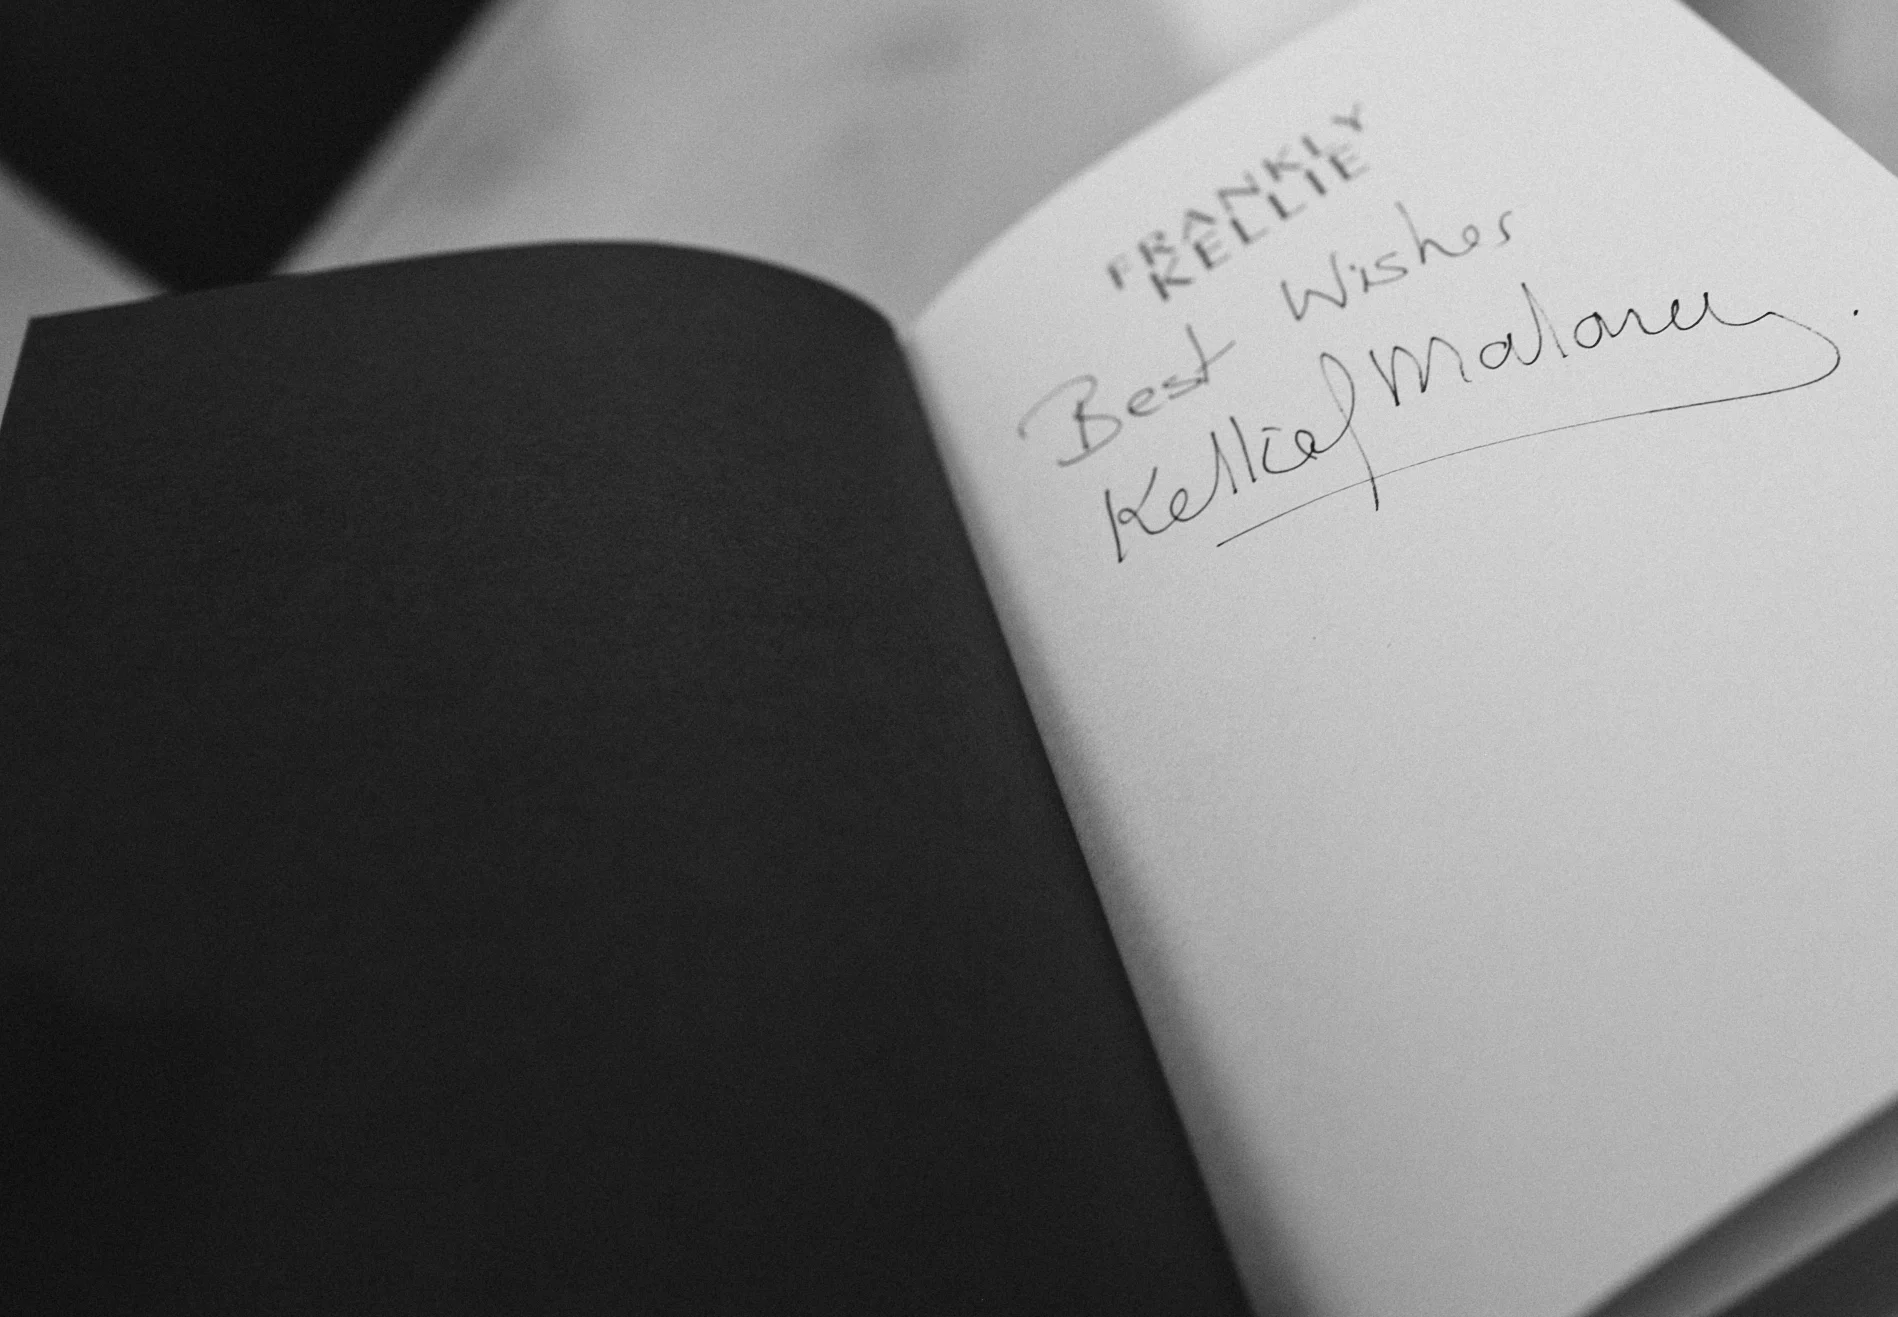 FRANKLY
KELLIE
Best Wishes
Kellie Maloney.